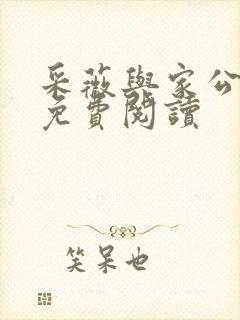 采薇與家公
免費閱讀
笑呆也